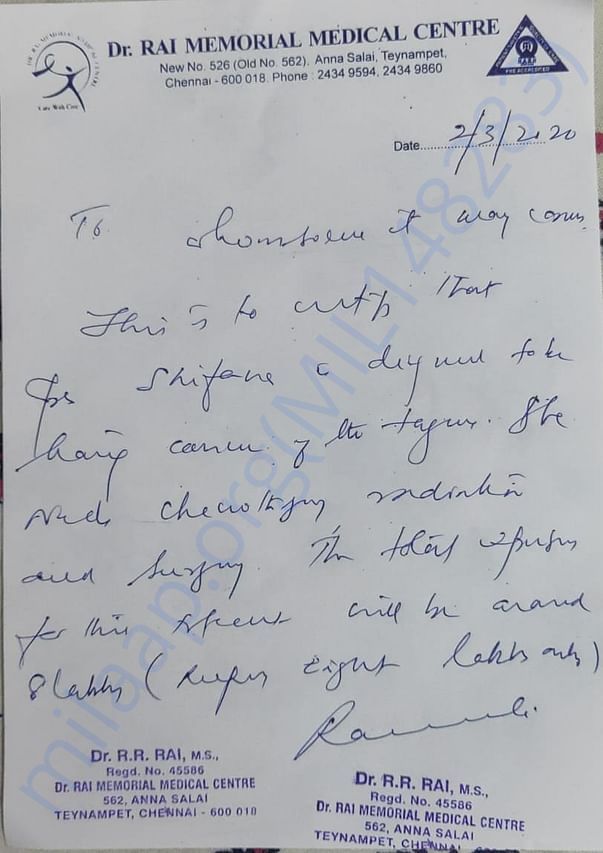 Dr. RAI MEMORIAL MEDICAL CENTRE
New No. 526 (Old No. 562), Anna Salai, Teynampet,
Chennai - 600 018. Phone : 2434 9594, 2434 9860
Care With Care
Date 2/3/2020
To it may
This is to certify that
Shifana is to be
having of the She
needs radiation
and surgery. The total
for this will be around
8 lakhs (Rupees eight lakhs only)
Dr. R.R. RAI, M.S.,
Regd. No. 45586
Dr. RAI MEMORIAL MEDICAL CENTRE
562, ANNA SALAI
TEYNAMPET, CHENNAI - 600 018
Dr. R.R. RAI, M.S.,
Regd. No. 45586
Dr. RAI MEMORIAL MEDICAL CENTRE
562, ANNA SALAI
TEYNAMPET, CHENNAI
milaap.org(MIL148283)